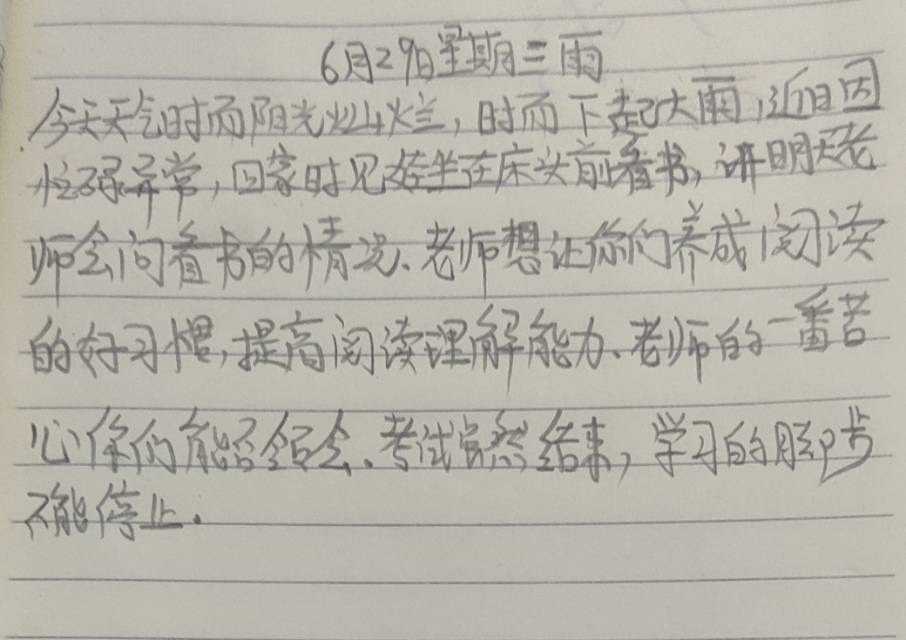 6月29日星期三雨
今天天气时而阳光灿烂,时而下起大雨,近日因
忙碌异常,回家时见婷坐在床头前看书,讲明天老
师会问看书的情况、老师想让你们养成阅读
的好习惯,提高阅读理解能力、老师的一番苦
心你们能否领会、考试虽然结束,学习的脚步
不能停止.